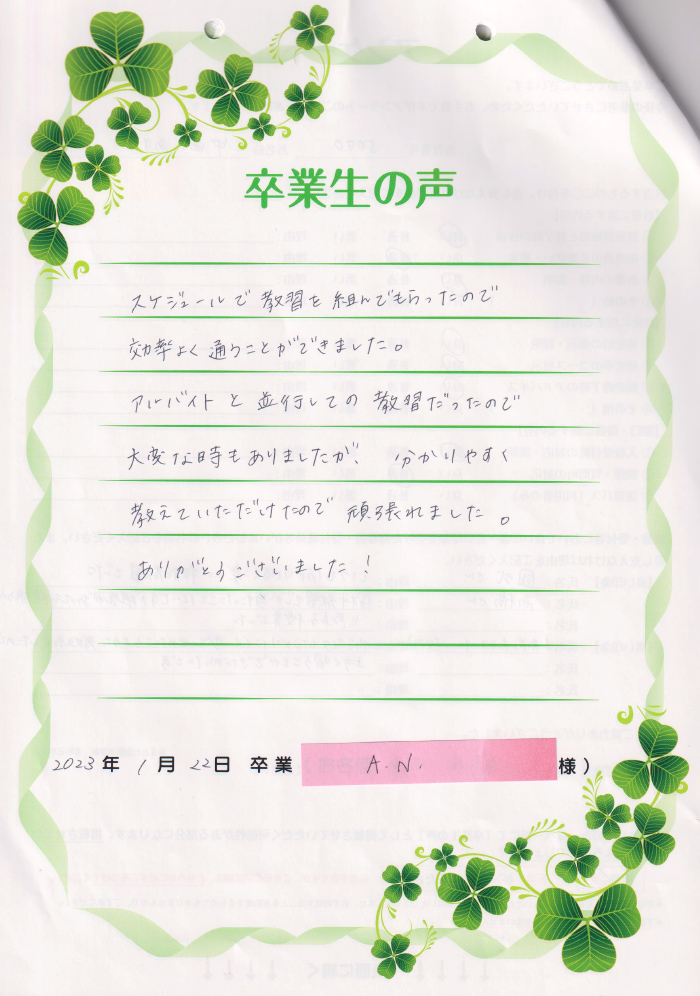 卒業生の声
スケジュールで教習を組んでもらったので
効率よく通うことができました。
アルバイトと並行しての教習だったので
大変な時もありましたが、分かりやすく
教えていただけたので頑張れました。
ありがとうございました!
2023年 1月 22日 卒業 A.N. 様)